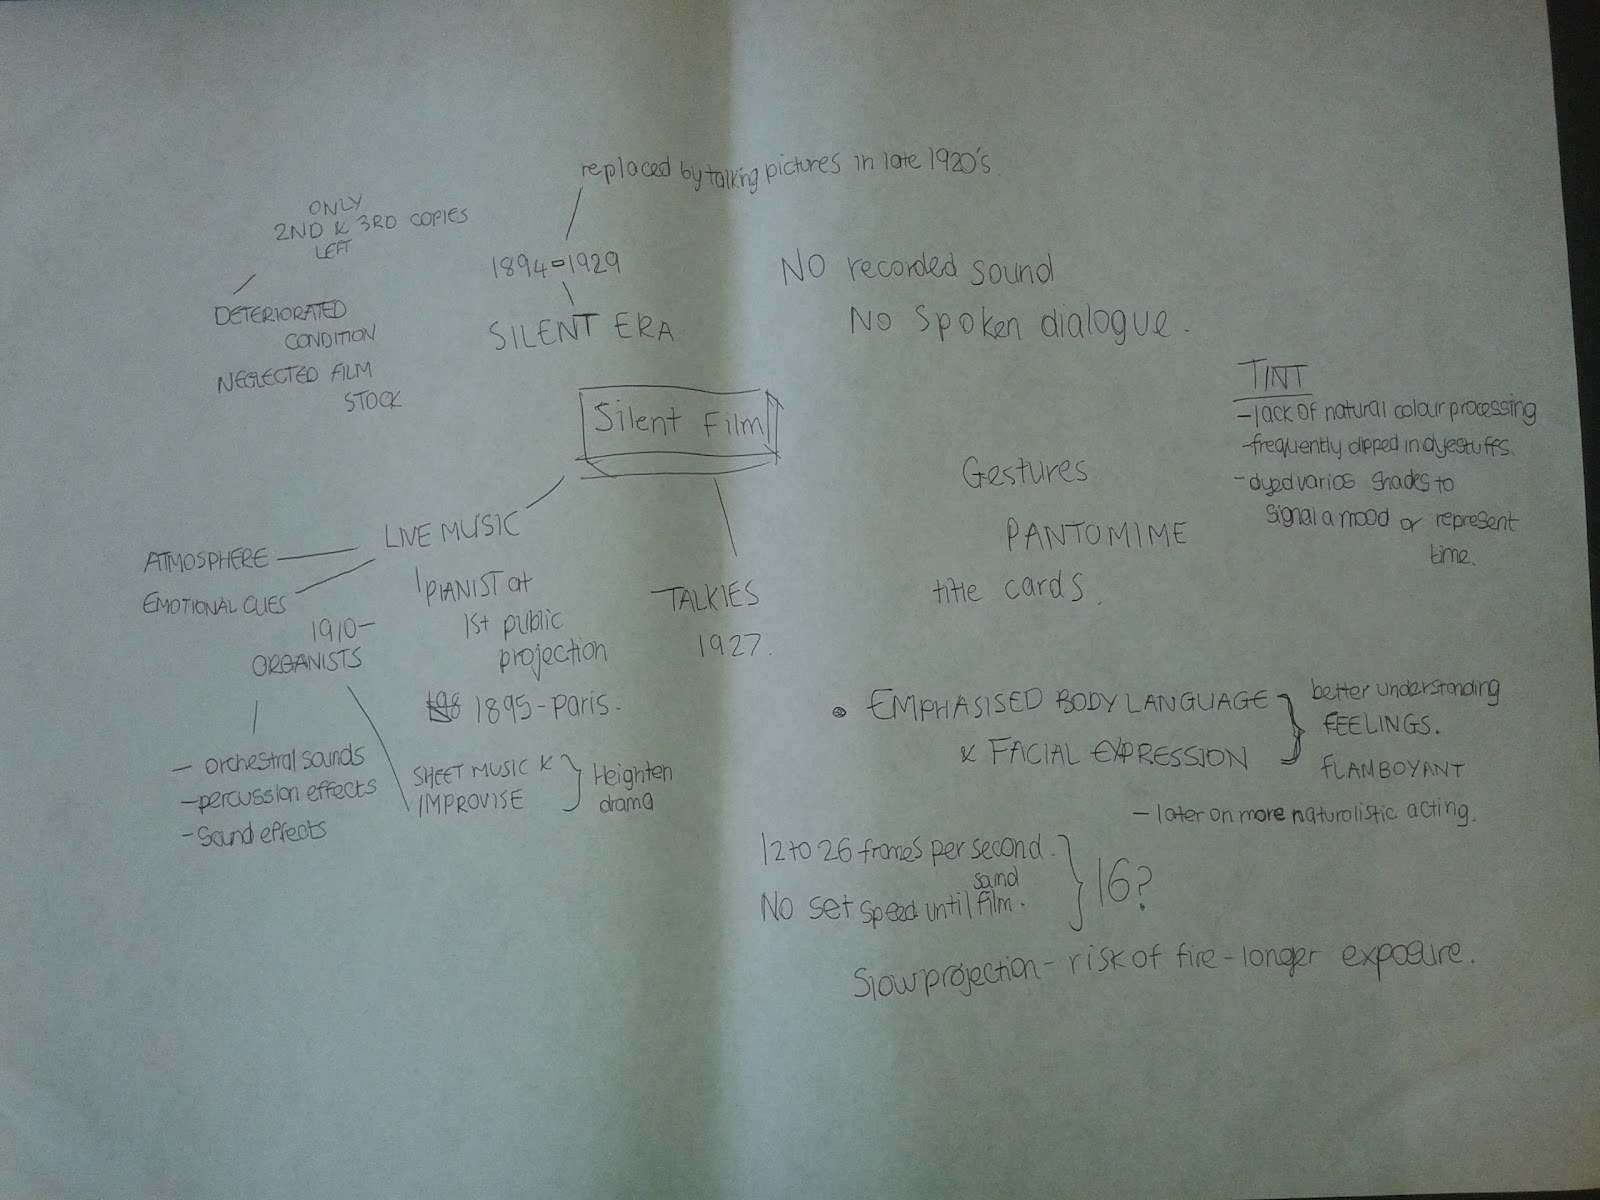 replaced by talking pictures in late 1920's
ONLY
2ND & 3RD COPIES
LEFT
DETERIORATED
CONDITION
NEGLECTED FILM
STOCK
1894-1929
SILENT ERA
NO recorded sound
No Spoken dialogue.
Silent Film
TINT
-lack of natural colour processing
-frequently dipped in dyestuffs.
-dyed varios shades to
signal a mood or represent
time.
Gestures
PANTOMIME
title cards.
LIVE MUSIC
ATMOSPHERE
EMOTIONAL CUES
PIANIST at
1st public
projection
1895-Paris.
1910-
ORGANISTS
- orchestral sounds
-percussion effects
-Sound effects
SHEET MUSIC &
IMPROVISE
Heighten
drama
TALKIES
1927.
EMPHASISED BODY LANGUAGE
& FACIAL EXPRESSION
better understanding
FEELINGS.
FLAMBOYANT
- later on more naturalistic acting.
12 to 26 frames per second.
sand
No set speed until film.
16?
Slow projection - risk of fire - longer exposure.